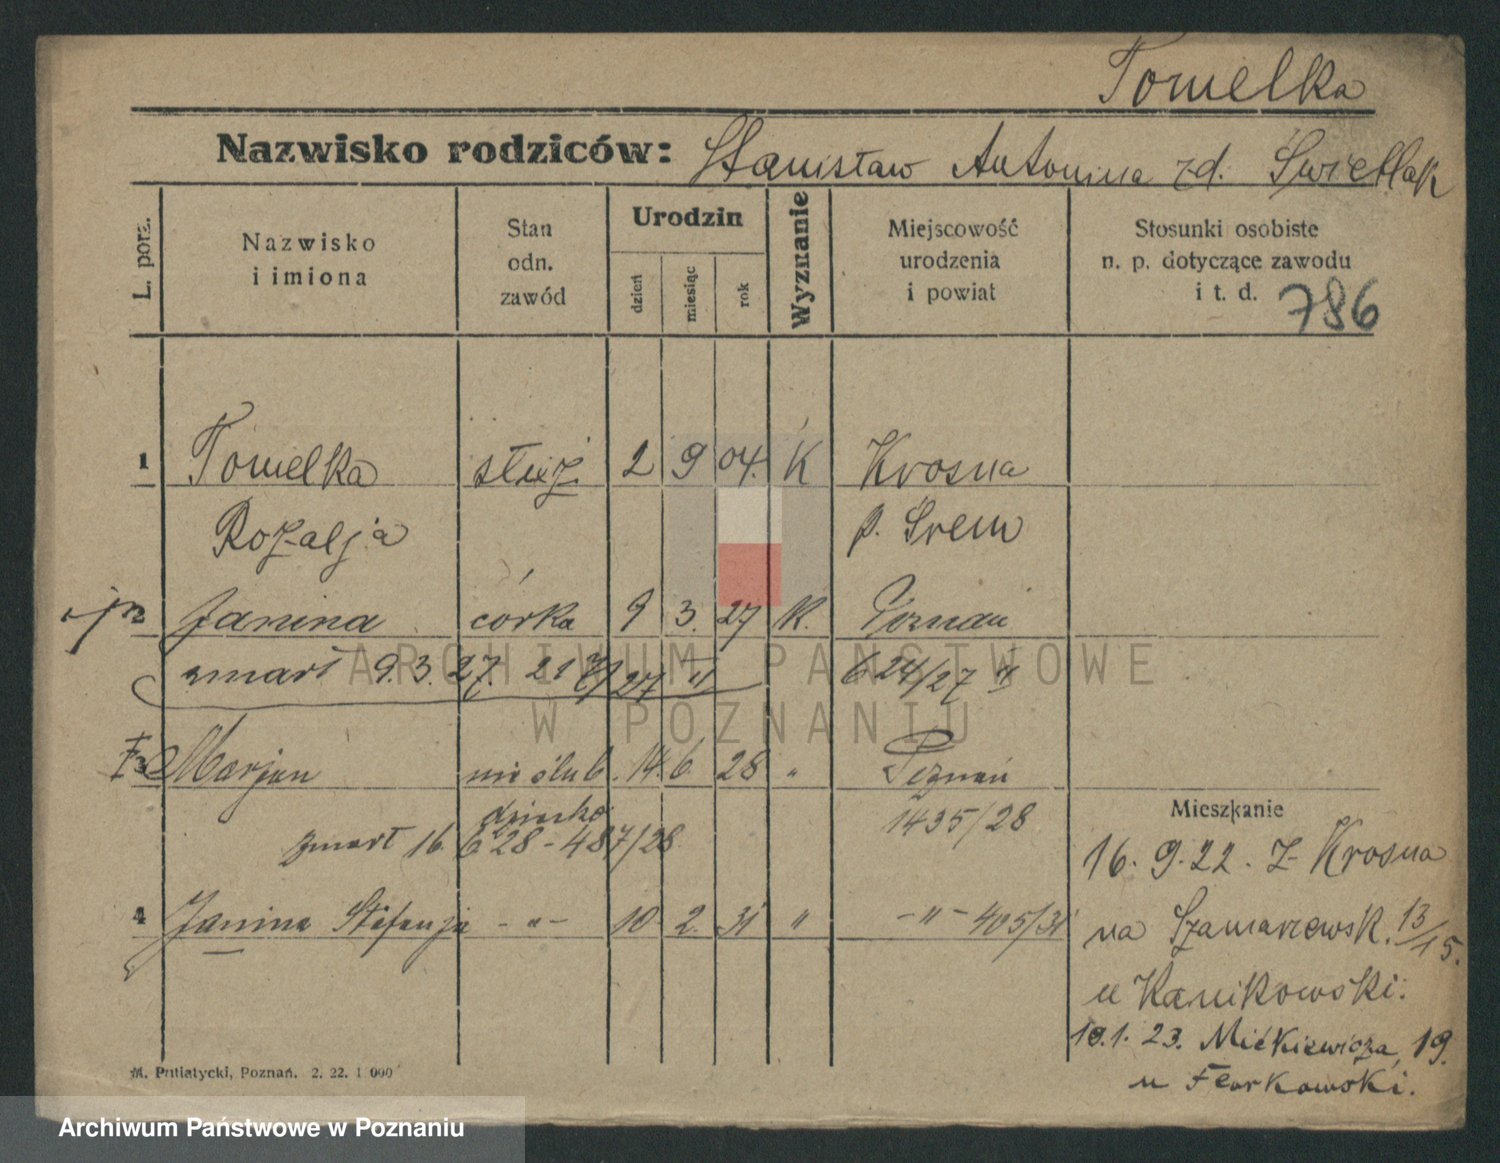 Tomelka
Nazwisko rodziców: Stanisław Antonina zd. Świetlak
L. porz.
Nazwisko
i imiona
Stan
odn.
zawód
Urodzin
dzień
miesiąc
rok
Wyznanie
Miejscowość
urodzenia
i powiat
Stosunki osobiste
n. p. dotyczące zawodu
i t. d. 786
1 Tomelka służ. 2 9 04. K Krosna
Rozalja p. Śrem
Janina córka 9 3. 27 K. Poznań
zmarł 9 3. 27. 624/27
3 Marjan nieślub. 14. 6. 28 " Poznań
dziecko 1435/28
zmarł 16. 6 28 - 487/28
Mieszkanie
16. 9. 22. z Krosna
4 Janina Stefanja - " - 10 2. 31 " - " - 405/31
na Szamarzewsk. 13/15.
u Kanikowski.
10. 1. 23. Mickiewicza 19.
u
M. Putiatycki, Poznań. 2. 22. 1 000
ARCHIWUM PAŃSTWOWE
W POZNANIU
Archiwum Państwowe w Poznaniu